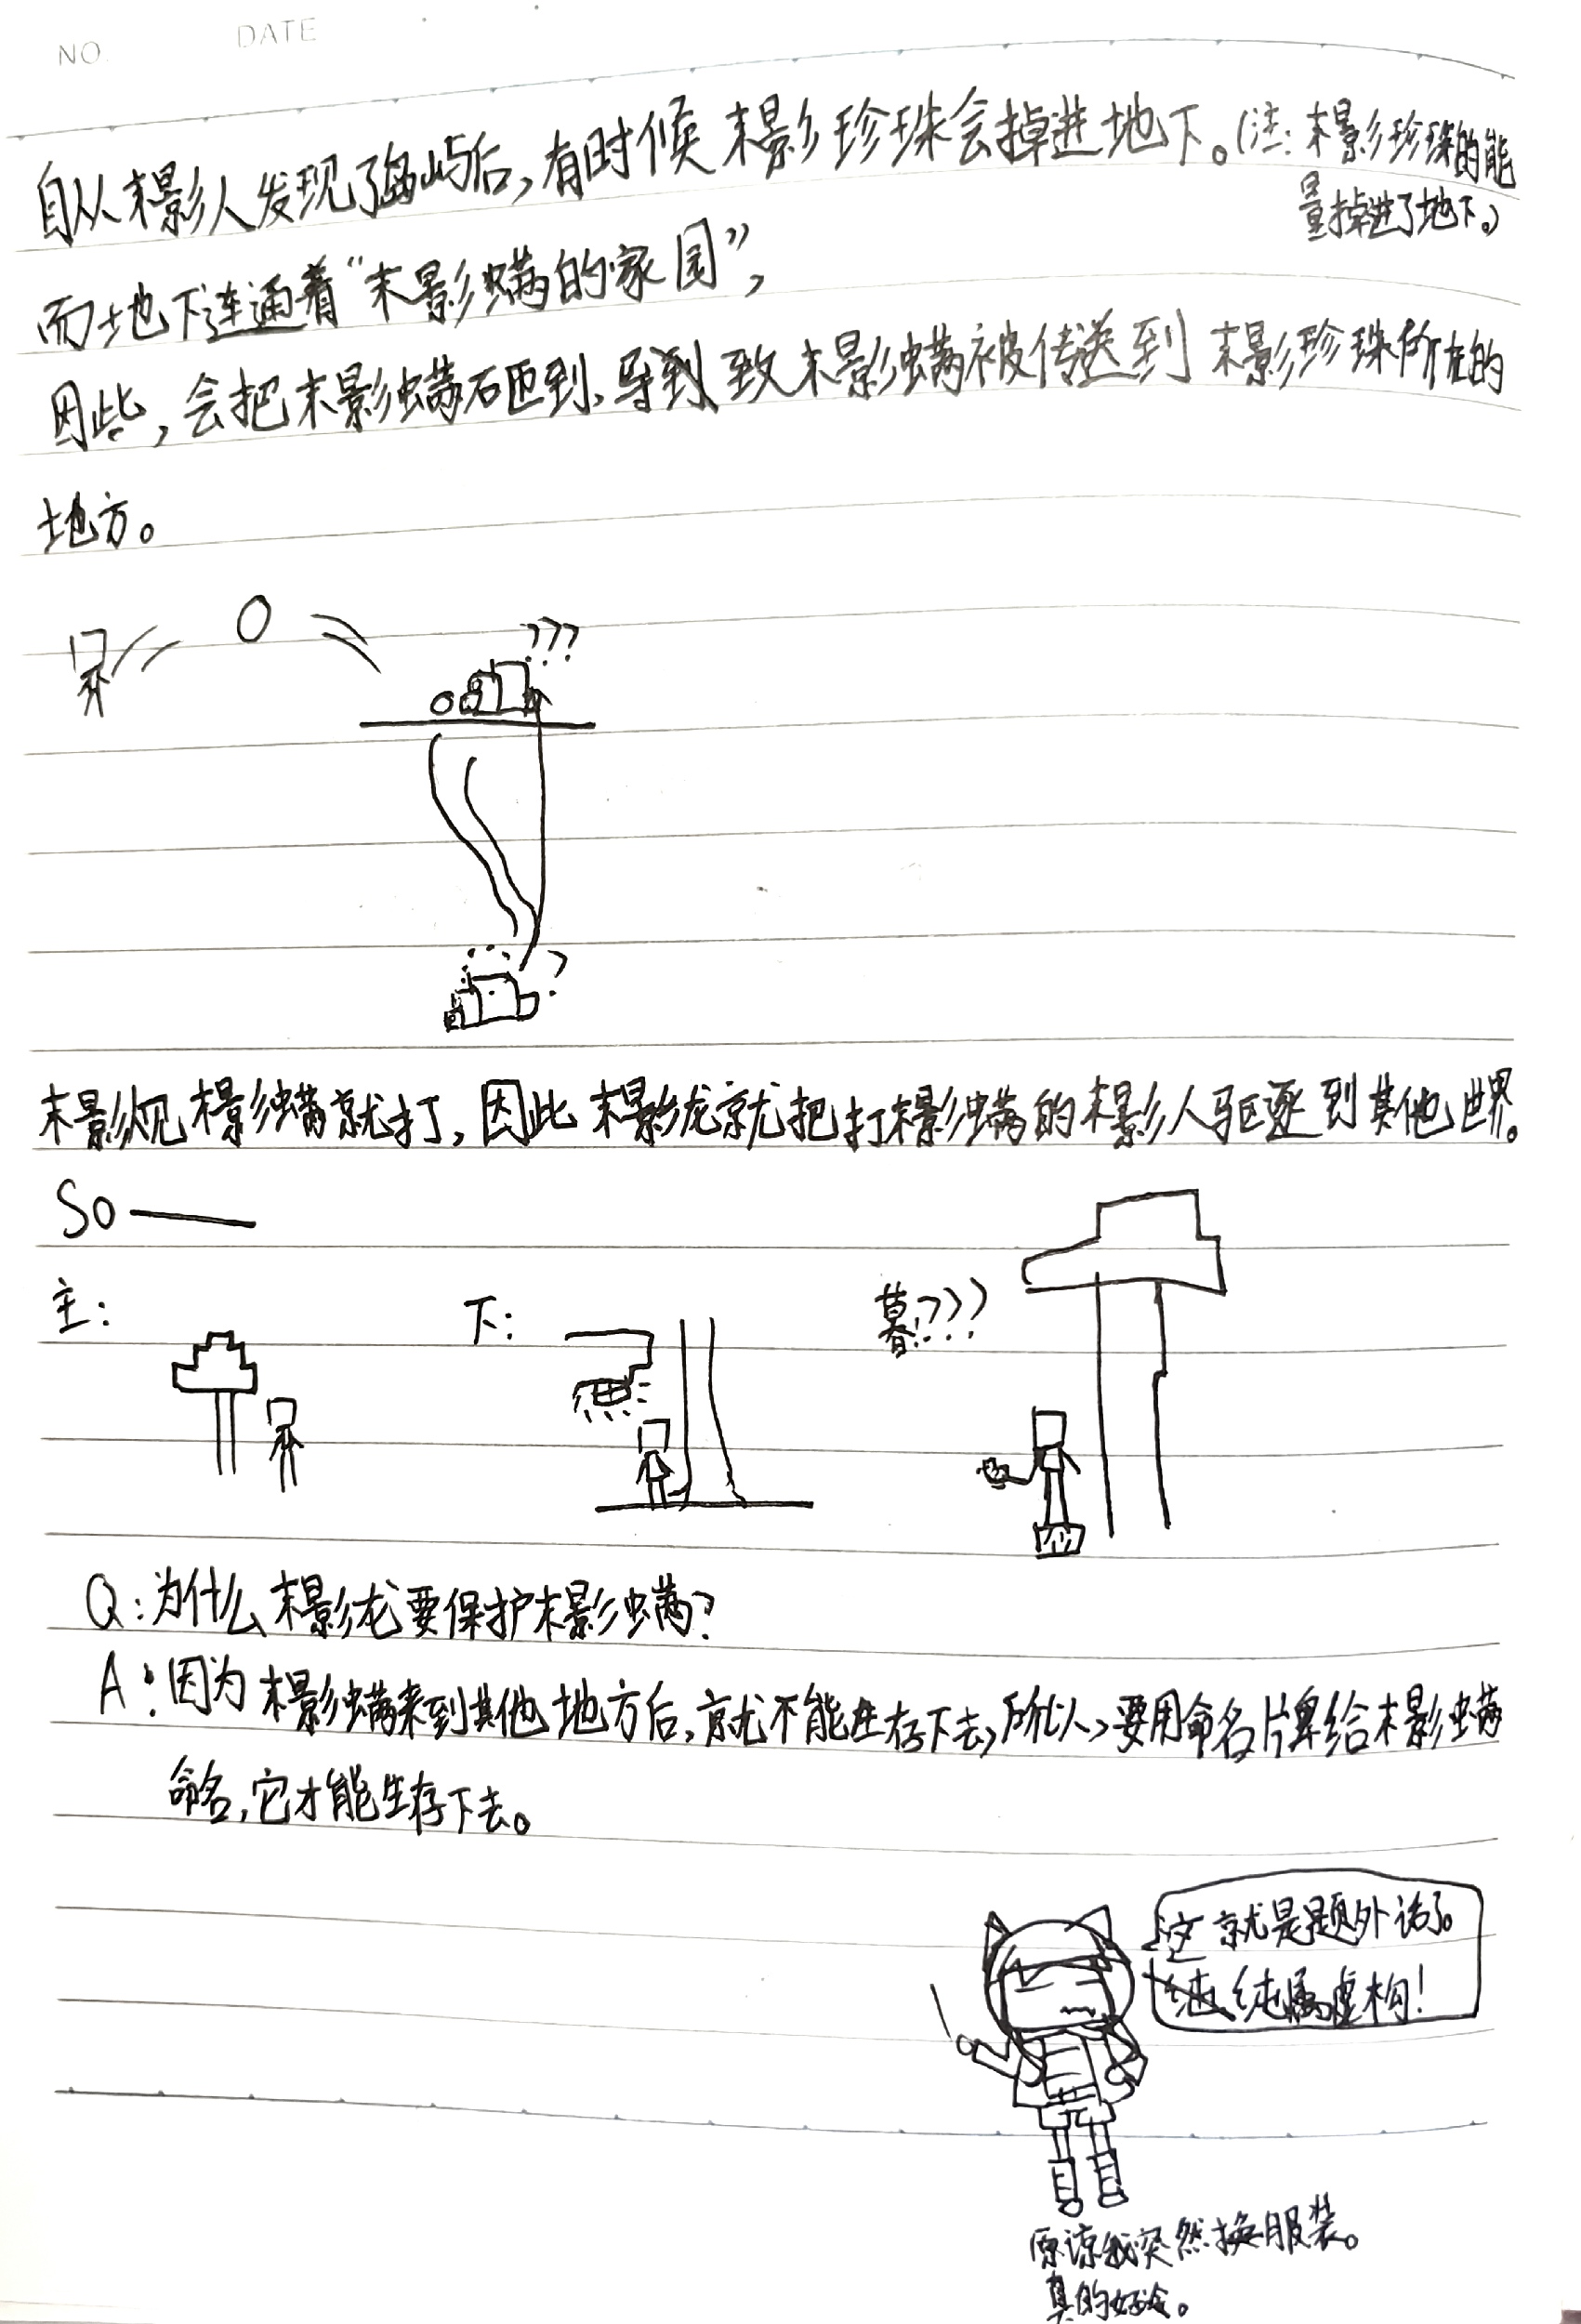 NO. DATE
自从末影人发现了岛屿后,有时候末影珍珠会掉进地下。(注:末影珍珠的能
量掉进了地下。)
而地下连通着“末影螨的家园”,
因此,会把末影螨砸到,导致末影螨被传送到末影珍珠所在的
地方。
???
?
末影人见末影螨就打,因此末影龙就把打末影螨的末影人驱逐到其他世界。
So——
主: 下: 暮???
Q:为什么末影龙要保护末影螨?
A:因为末影螨来到其他地方后,就不能生存下去,所以,要用命名牌给末影螨
命名,它才能生存下去。
这就是题外话了。
纯属虚构!
原谅我突然换服装。
真的好冷。